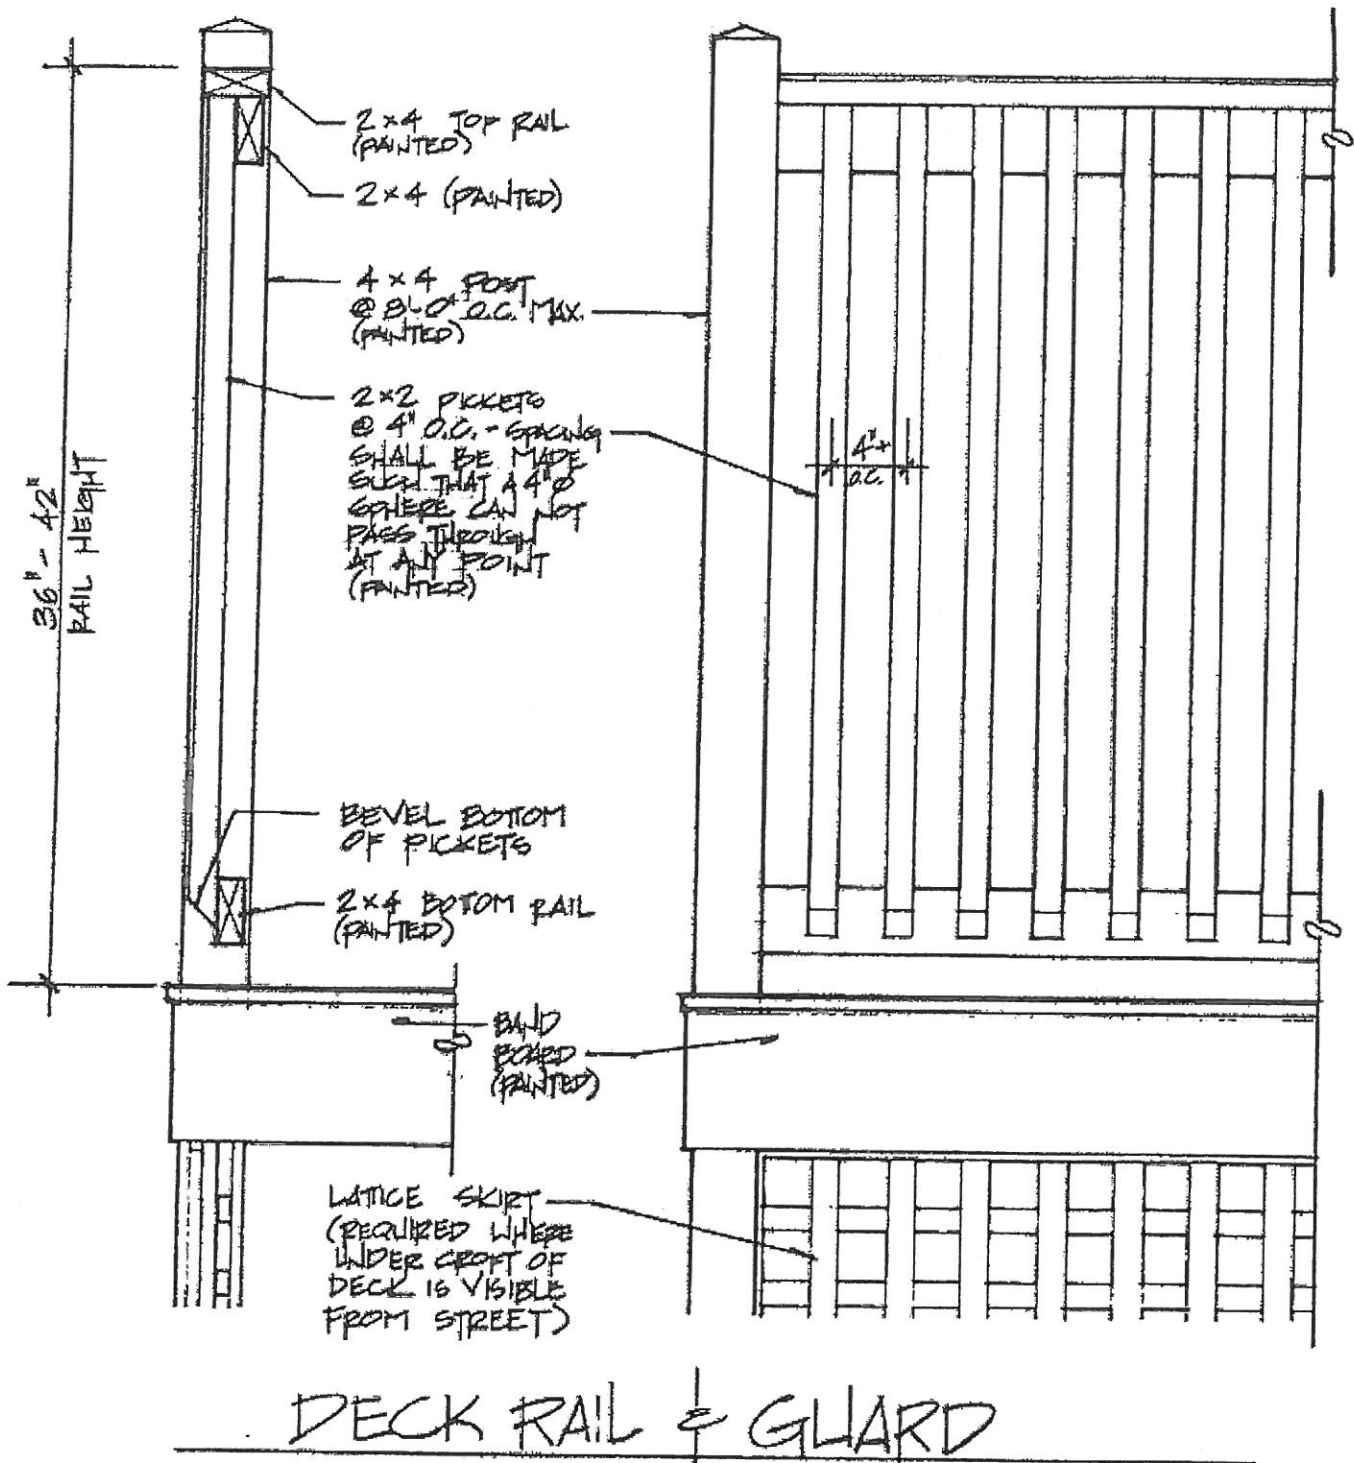 2×4 TOP RAIL
(PAINTED)
2×4 (PAINTED)
4×4 POST
@ 8'-0" O.C. MAX.
(PAINTED)
2×2 PICKETS
@ 4" O.C. - SPACING
SHALL BE MADE
SUCH THAT A 4"Ø
SPHERE CAN NOT
PASS THROUGH
AT ANY POINT
(PAINTED)
4"±
O.C.
36" - 42"
RAIL HEIGHT
BEVEL BOTTOM
OF PICKETS
2×4 BOTTOM RAIL
(PAINTED)
BAND
BOARD
(PAINTED)
LATTICE SKIRT
(REQUIRED WHERE
UNDER CROFT OF
DECK IS VISIBLE
FROM STREET)
DECK RAIL & GUARD